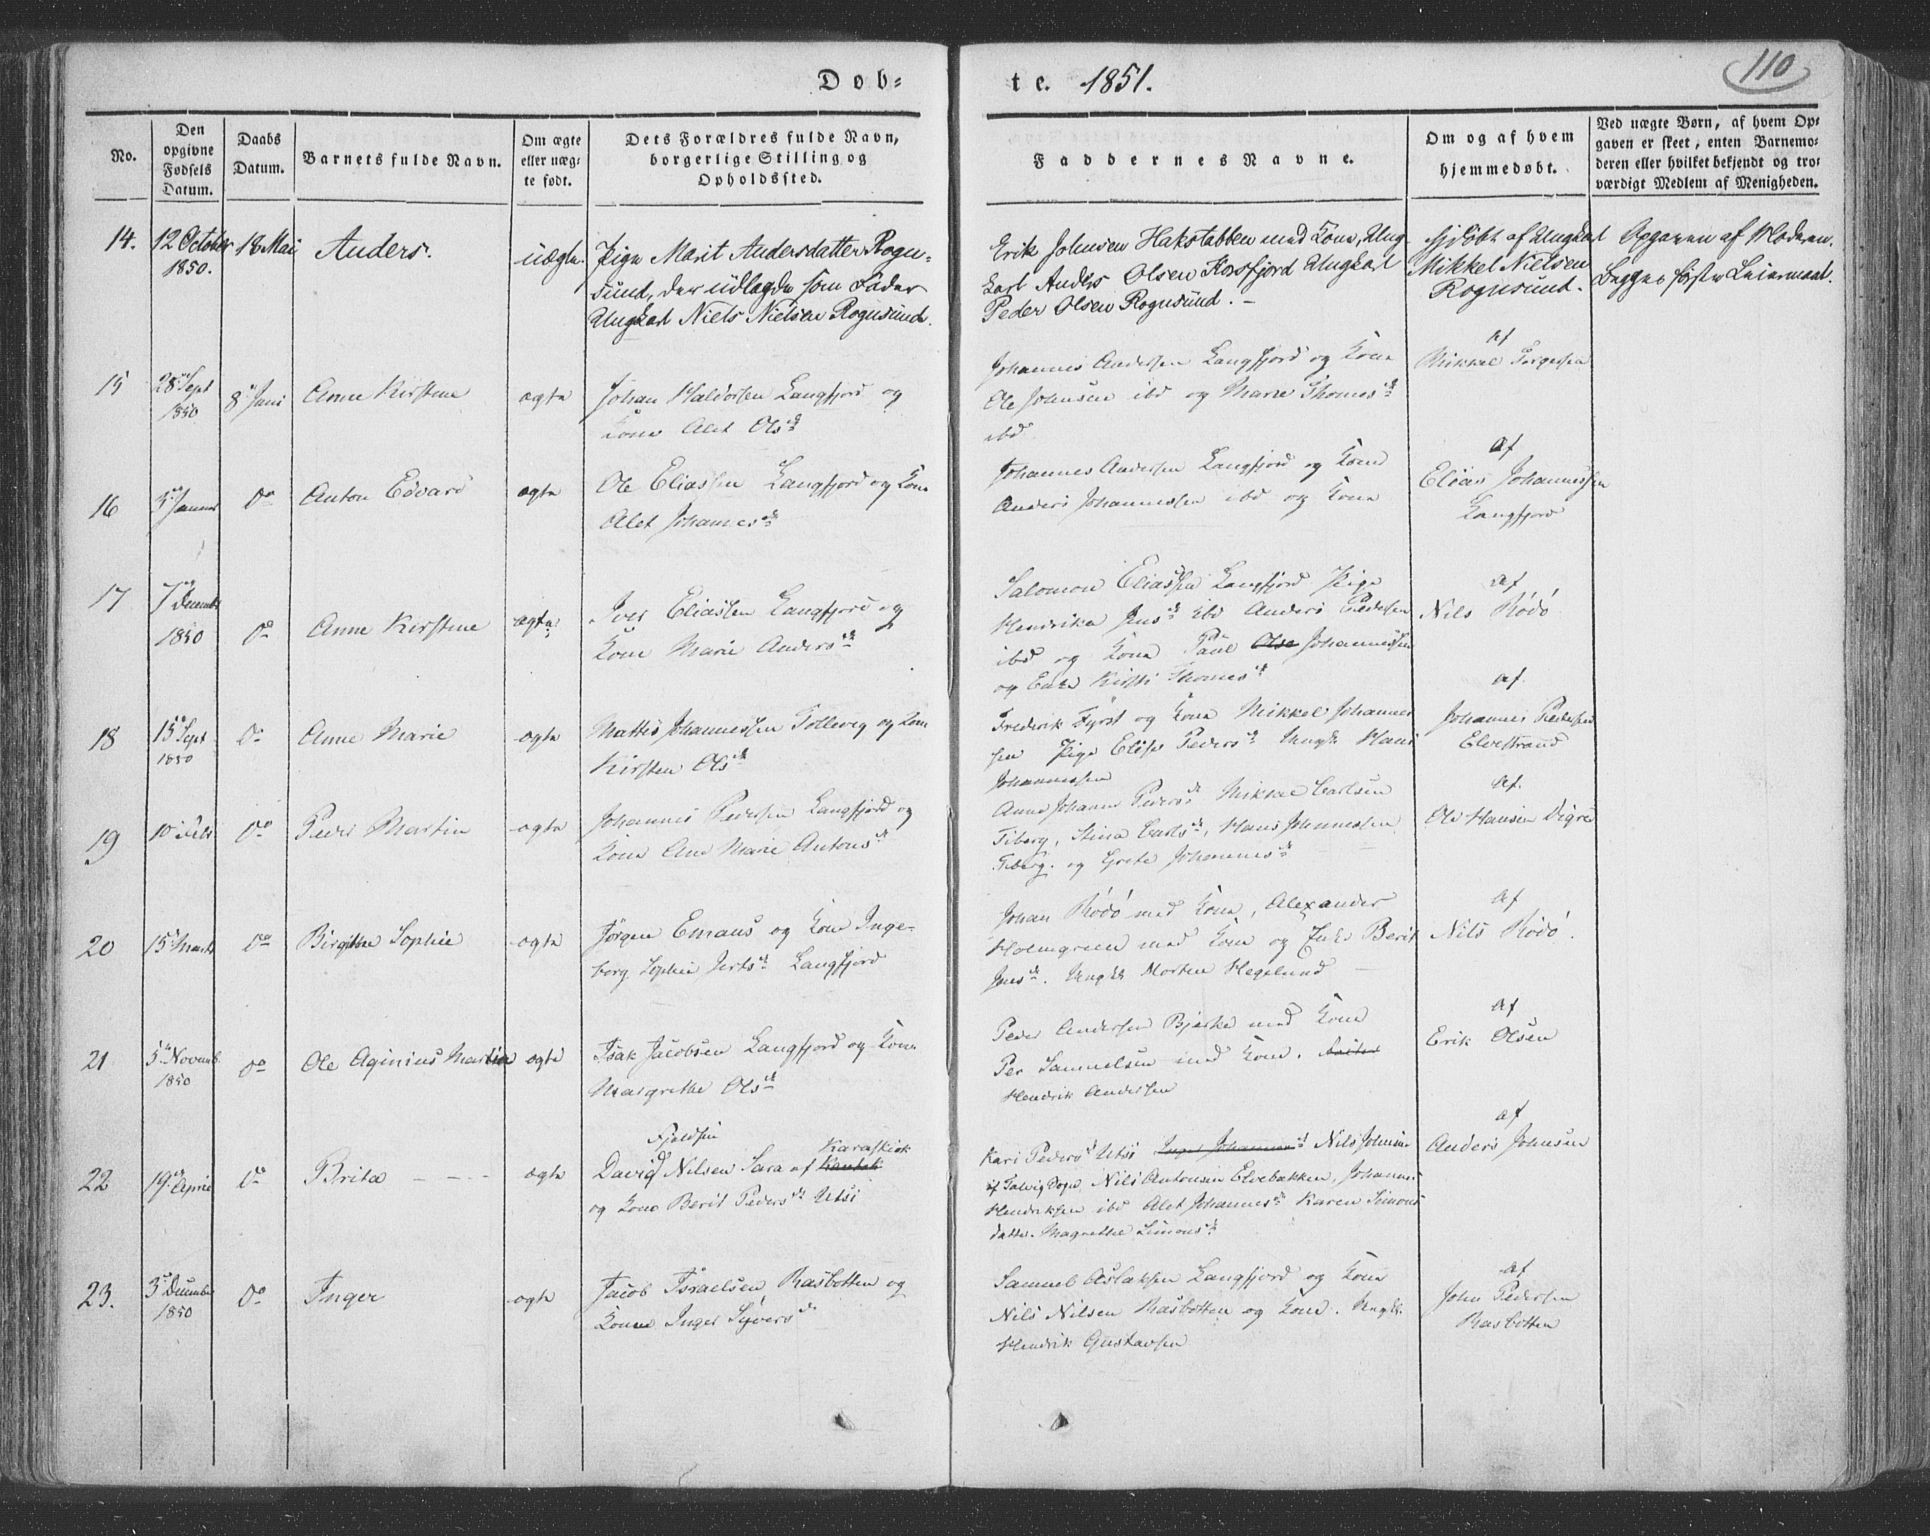 Døb-
te. 1851.
110
No.
Den opgivne Fødsels Datum.
Daabs Datum.
Barnets fulde Navn.
Om ægte eller uæg-te født.
Dets Forældres fulde Navn, borgerlige Stilling og Opholdssted.
Faddernes Navne.
Om og af hvem hjemmedøbt.
Ved uægte Børn, af hvem Op-
gaven er skeet, enten Barnemo-
deren eller hvilket bekjendt og tro-
værdigt Medlem af Menigheden.
14.
12 October
1850.
18 Mai
Anders.
uægte.
Pige Marit Andersdatter Rogn-
sund, der udlagde som Fader
Ungkarl Niels Nielsen Rognsund.
Erik Johnsen Hakstabben med Kone, Ung-
karl Anders Olsen Korsfjord Ungkarl
Peder Olsen Rognsund. –
hjdøbt af Ungkarl
Mikkel Nielsen
Rognsund.
Opgaven af Moderen.
Begges første Leiermaal.
15
28 Sept
1850
8 Juni
Anne Kirstine
ægte
Johan Haldorsen Langfjord og
Kone Alet Olsd
Johannes Andersen Langfjord og Kone
Ole Johnsen ibd og Marie Thomesd
ibd
af
Mikkel
16
Januar
Do
Anton Edvard
ægte
Ole Eliassen Langfjord og Kone
Alet Johannesd
Johannes Andersen Langfjord og Kone
Anders Johannessen ibd og Kone
af
Elias Johannessen
Langfjord
17
7 Decemb
1850
Do
Anne Kirstine
ægte
Iver Eliassen Langfjord og
Kone Marie Andersd
Salomon Eliassen Langfjord Pige
Hendrika Jensd ibd Anders Pedersen
ibd og Kone Paul Olse Johannessen
og Enke Kirsti Thomesd
af
Nils Rödö
18
15 Sept
1850
Do
Anne Marie
ægte
Mattis Johannessen Tollevig og Kone
Kirsten Olsd
Frederik Fyrst og Kone Mikkel Johannes
sen Pige Elise Pedersd Ungk Hans
Johannessen
af
Johannes Pedersen
Elvestrand
19
10 Feb
Do
Peder Martin
ægte
Johannes Pedersen Langfjord og
Kone Ane Marie Antonsd
Anne Johanne Pedersd Mikkel Carlsen
Tiberg, Stina Carlsd, Hans Johannessen
Tiberg. og Grete Johannesd
af
Ole Hansen
20
15 Marts
Do
Birgithe Sophie
ægte
Jörgen Emaus og Kone Inge-
borg Sophie Langfjord
Johan Rödö med Kone, Alexander
Holmgreen med Kone og Enke Berit
Jensd. Ungk Morten Hegelund
af
Nils Rödö.
21
5 Novemb
1850
Do
Ole Aginius Martin
ægte
Isak Jacobsen Langfjord og Kone
Margrethe Olsd
Peder Andersen Bjerke med Kone
Per Samuelsen med Kone.
Hendrik Andersen
af
Erik Olsen
22
19 Aprie
Do
Brita – – – –
ægte
Fjeldfin
Karaskiok
David Nilsen Sara af
og Kone Berit Pedersd Utsi
Kari Pedersd Utsi Inger Johannesd Nils Johnsen
af Talvig Sogn Nils Antonsen Elvebakken, Johannes
Hendriksen ibd Alet Johannesd Karen Simons
datter. Magrethe Simonsd
af
Anders Johnsen
23.
3 Decembr
1850
Do
Inger
ægte
Jacob Israelsen Rasbotten og
Kone Inger Syversd
Samuel Aslaksen Langfjord og Kone
Nils Nilsen Rasbotten og Kone. Ungk
Hendrik Gustavsen
af
John Pedersen
Rasbotten